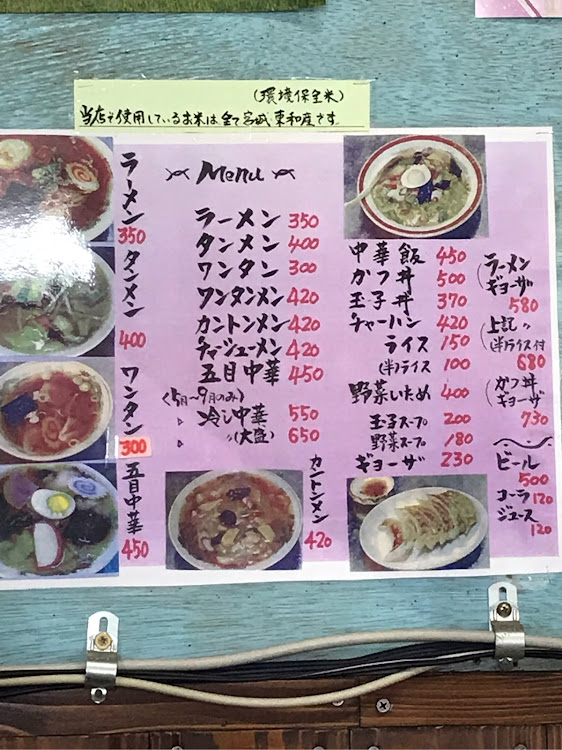 (環境保全米)
当店で使用しているお米は全て宮城東和産です。
Menu
ラーメン 350
タンメン 400
ワンタン 300
ワンタンメン 420
カントンメン 420
チャーシューメン 420
五目中華 450
(5月~9月のみ)
〃 冷し中華 550
〃 〃(大盛) 650
中華飯 450
かつ丼 500
玉子丼 370
チャーハン 420
ライス 150
(半)ライス 100
野菜いため 400
玉子スープ 200
野菜スープ 180
ギョーザ 230
ラーメン
ギョーザ
580
上記〃
(半)ライス付
680
かつ丼
ギョーザ
730
ビール
500
コーラ 120
ジュース
120
ラーメン
350
タンメン
400
ワンタン
300
五目中華
450
カントンメン
420